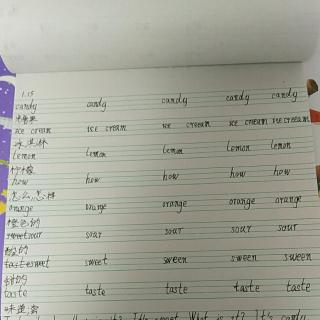 1.15
candy candy candy candy candy
糖果
ice cream ice cream ice creeam ice cream ice cream
冰淇淋
lemon lemon lemon lemon lemon
柠檬
how how how how how
怎么,怎样
orange orange orange orange
橙色的
sour sour sour sour
酸的
sweet sweet sween sween sween
甜的
taste taste taste taste taste
味道
It's sweet. What is it? It's candy